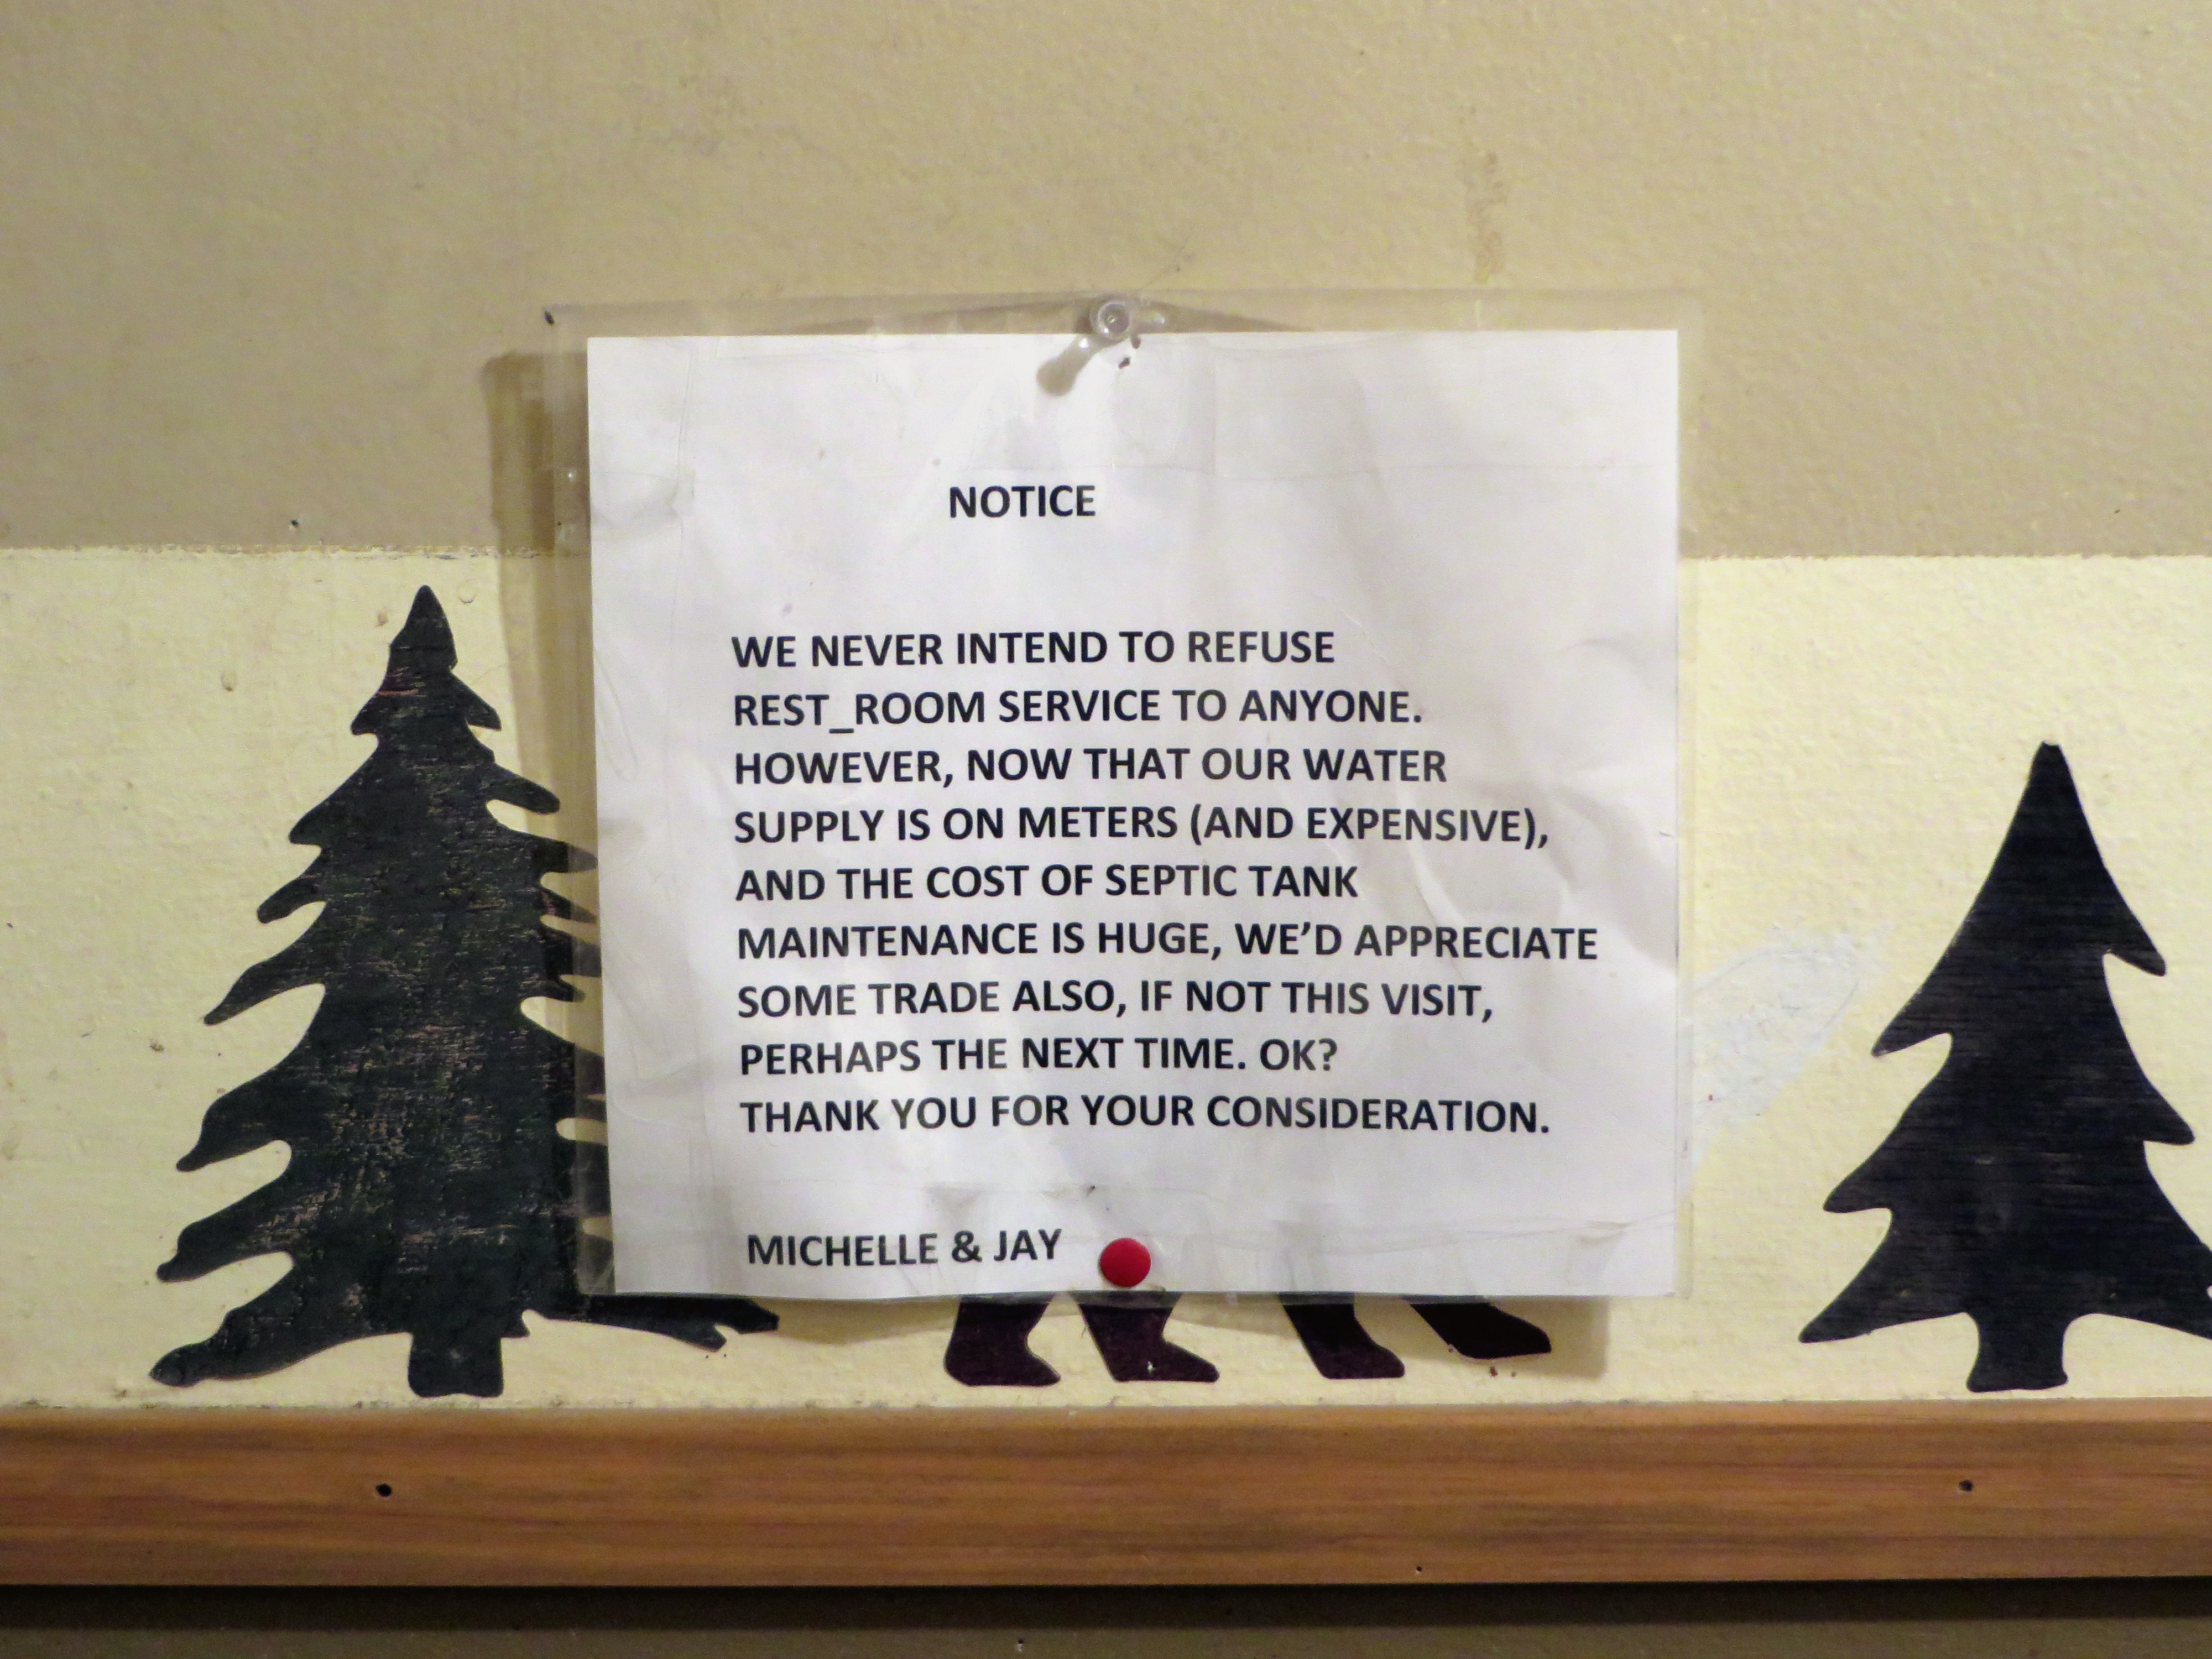 NOTICE
WE NEVER INTEND TO REFUSE
REST_ROOM SERVICE TO ANYONE.
HOWEVER, NOW THAT OUR WATER
SUPPLY IS ON METERS (AND EXPENSIVE),
AND THE COST OF SEPTIC TANK
MAINTENANCE IS HUGE, WE’D APPRECIATE
SOME TRADE ALSO, IF NOT THIS VISIT,
PERHAPS THE NEXT TIME. OK?
THANK YOU FOR YOUR CONSIDERATION.
MICHELLE & JAY